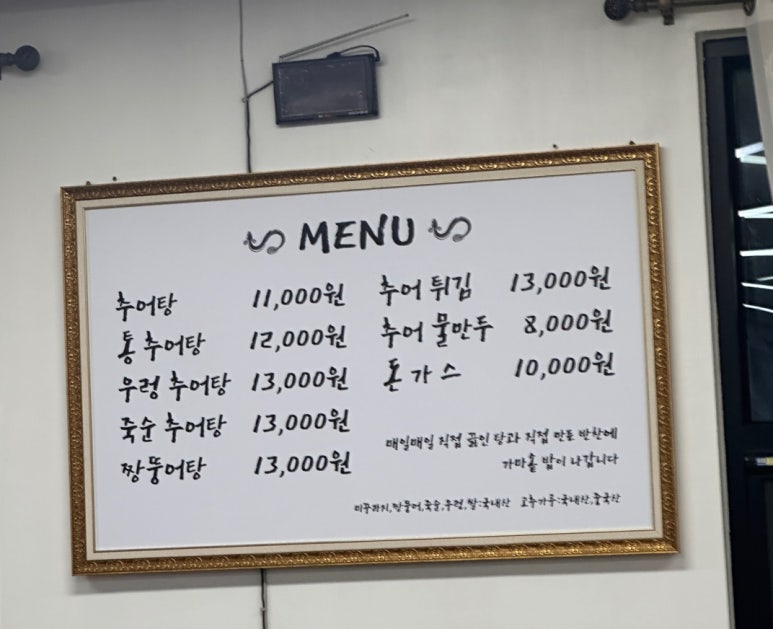 MENU
추어탕 11,000원
통 추어탕 12,000원
우렁 추어탕 13,000원
죽순 추어탕 13,000원
짱뚱어탕 13,000원
추어 튀김 13,000원
추어 물만두 8,000원
돈가스 10,000원
매일매일 직접 끓인 탕과 직접 만든 반찬에
가마솥 밥이 나갑니다
미꾸라지,짱뚱어,죽순,우렁,쌀:국내산 고추가루:국내산,중국산